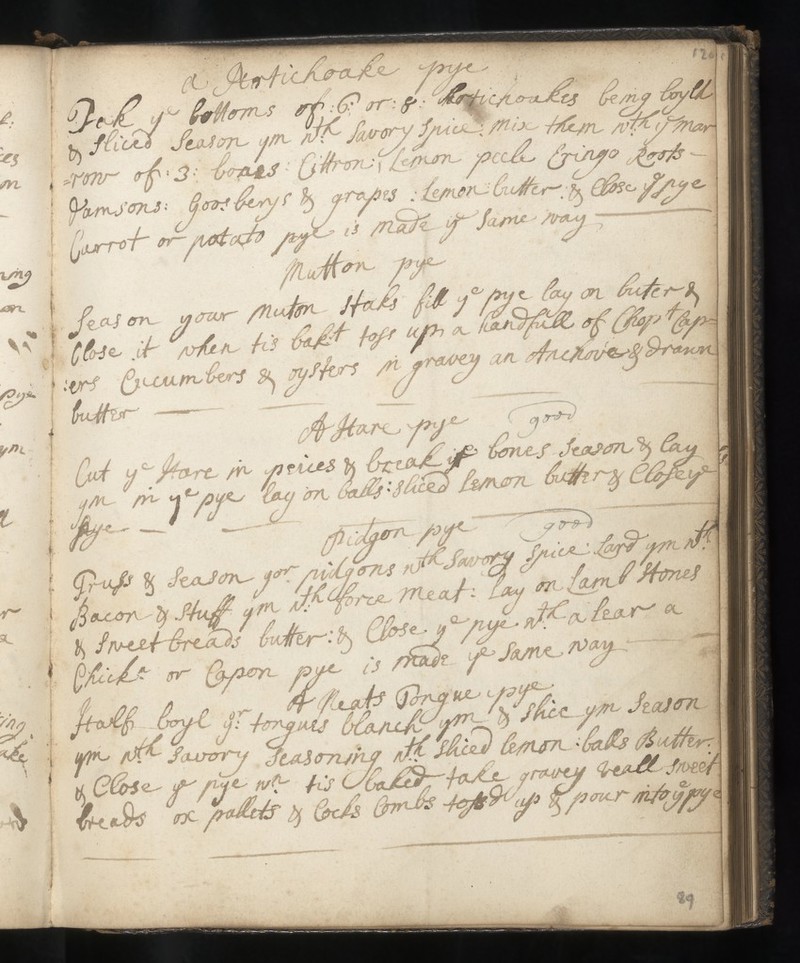 120
a Artichoake pye
Tak ye bottoms of :6: or :8: Artichoakes being boyld
& sliced Season ym wth Savory Spice: mix them wth ye mar
=row of :3: bones: Cittron; Lemon peele Eringo Roots—
Damsons: Goosberys & grapes: Lemon: butter: & Close ye pye
Carrot or potato pye is made ye Same way
Mutton pye
Season your Muton Staks fill ye pye lay on buter &
Close it when tis bakt toss up a handfull of Chopt Cap=
:ers Cucumbers & oysters in gravey an Anchove & drawn
butter
A Hare pye good
Cut ye Hare in peices & break ye bones Season & lay
ym in ye pye lay on balls: sliced lemon butter & Close ye
pye
pidgon pye good
Truss & Season yor pidgons wth Savory Spice: Lard ym wth
Bacon & Stuff ym wth force meat: lay on Lamb Stones
& Sweetbreads butter: & Close ye pye wth a lear a
Chickn or Capon pye is made ye Same way
A Neats Tongue pye
Half boyl yr tongues blanch ym & slice ym Season
ym wth Savory Seasoning wth sliced lemon: balls Butter:
& Close ye pye wn tis baked take gravey veall sweet
breads ox pallets & Cocks Combs tossd up & pour into ye pye
89